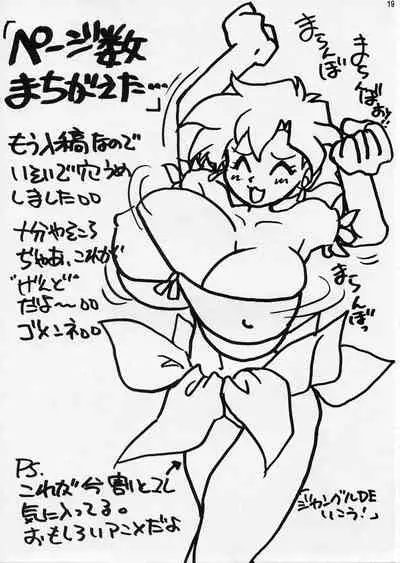 19
「ページ数
まちがえた…」
もう入稿なので
いそいで穴うめ
しました00
十分やそこら
ぢゃあ、これが
げんど
だよ〜00
ゴメンネ00
まちんぼ
まちんぼぉ!
まちんぼっ
P.S.
これだ今割とコレ
気に入ってる。
おもしろいアニメだよ
「ジャングルDE
いこう!」